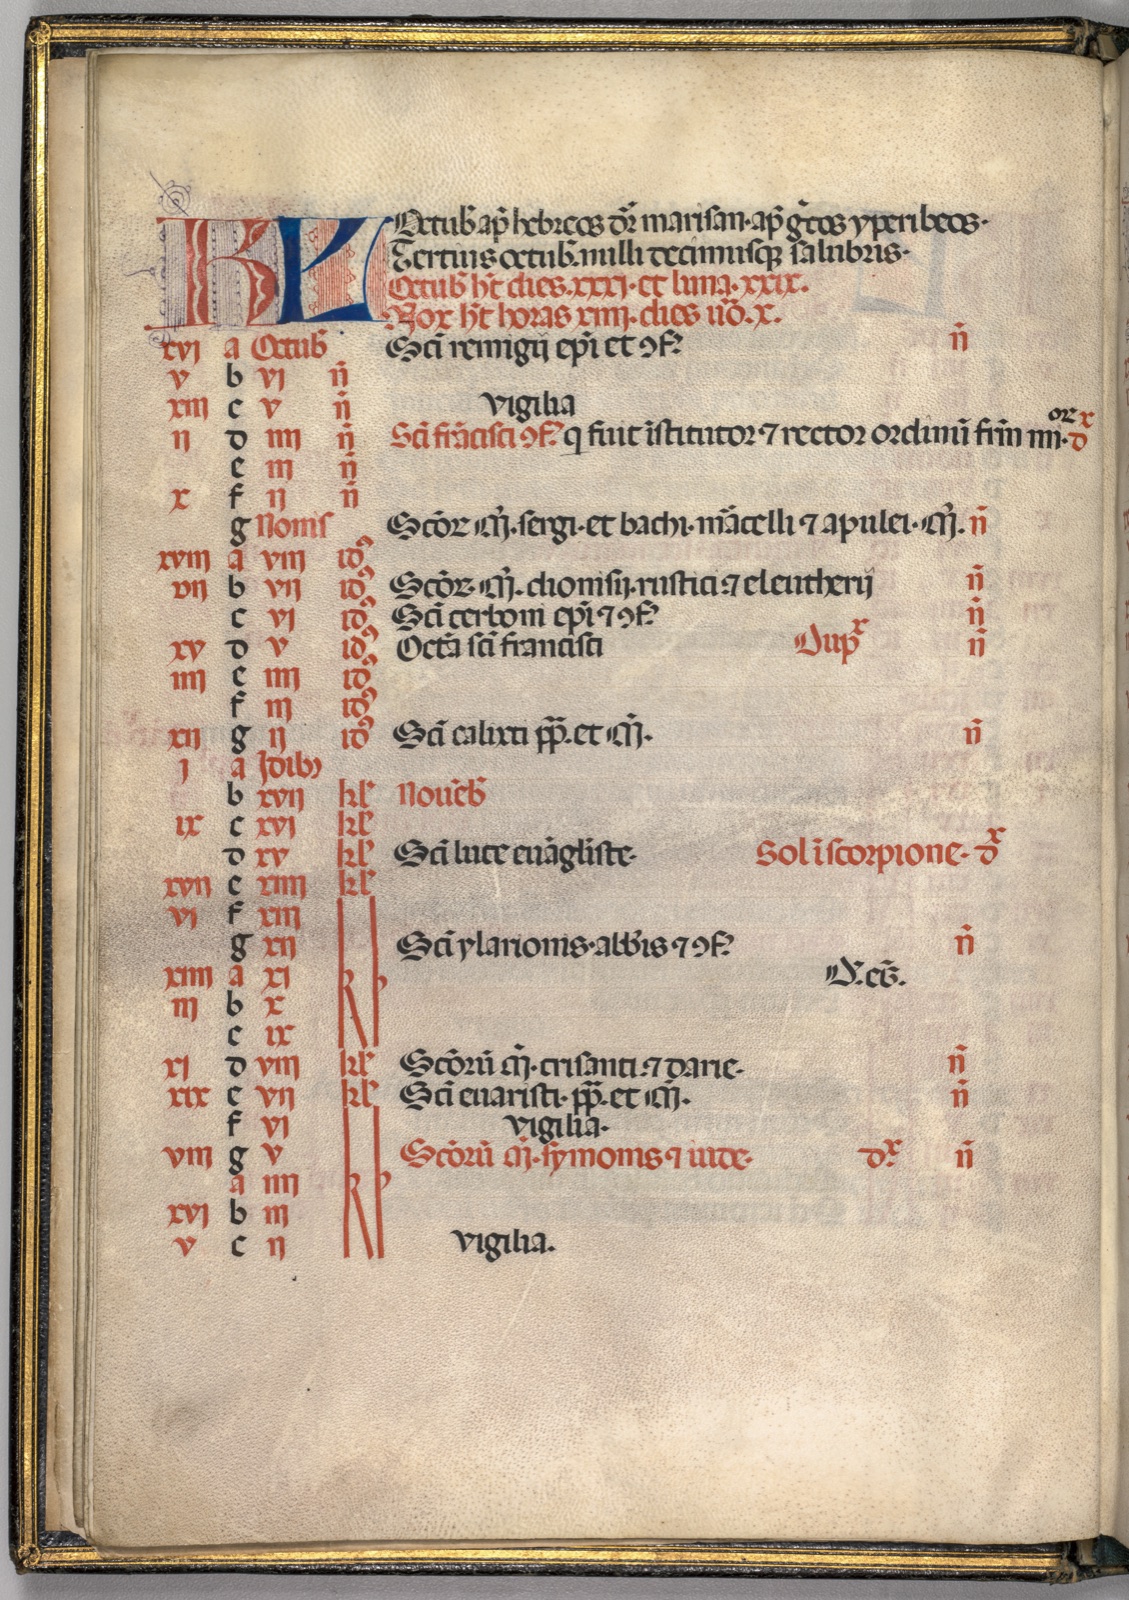 KL Octub̄ ap̄ hebreos dr̄ marisan· ap̄ gͣcos yperibeos·
Tertius octub̄ milli decimusq; salubris·
Octub̄ ht̄ dies·xxxj· et luna·xxix·
Nox ht̄ horas xiiij· dies u̅o·x·
xvj a Octub̄ Sc̄i remigij ep̄i et ꝯf̄ n̄
v b vj n̄
xiij c v n̄ vigilia
ij d iiij n̄ Sc̄i frācisci ꝯf̄ q fuit īstitutor ⁊ rector ordinū frm̄ mi·oꝝ dx
e iij n̄
x f ij n̄
g Nonis Sc̄oꝝ m̄· sergi· et bachi· mͣcelli ⁊ apulei· m̄· n̄
xviij a viij idꝰ
vij b vij idꝰ Sc̄oꝝ· m̄· dionisij· rustici ⁊ eleutherij n̄
c vj idꝰ Sc̄i cerboni ep̄i ⁊ ꝯf̄ n̄
xv d v idꝰ Octā sc̄i francisci Dupx n̄
iiij e iiij idꝰ
f iij idꝰ
xij g ij idꝰ Sc̄i calixti pp̄· et m̄· n̄
j a Jdibꝰ
b xvij kl̄ Nouēb̄
ix c xvj kl̄
d xv kl̄ Sc̄i luce euāgliste· Sol ī scorpione· dx
xvij e xiiij kl̄
vj f xiij
g xij Sc̄i ylarionis· abb̄is ⁊ ꝯf̄ n̄
xiiij a xj kl D· eḡ·
iij b x
c ix
xj d viij kl̄ Sc̄orū m̄· crisanti ⁊ darie· n̄
xix e vij kl̄ Sc̄i euaristi· pp̄· et m̄· n̄
f vj vigilia·
viij g v Sc̄orū m̄· symonis ⁊ iude· dx n̄
a iiij kl
xvj b iij
v c ij vigilia·